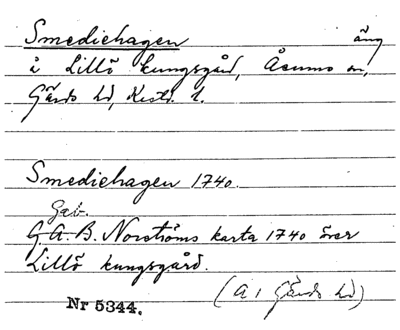 Smediehagen äng
å Lillö kungsgård, Åsumo sn,
Gärds hd, Krist. l.
Smediehagen 1740.
Gab.
G. A. B. Norströms karta 1740 över
Lillö kungsgård.
(A 1 Gärds hd)
Nr 5344.